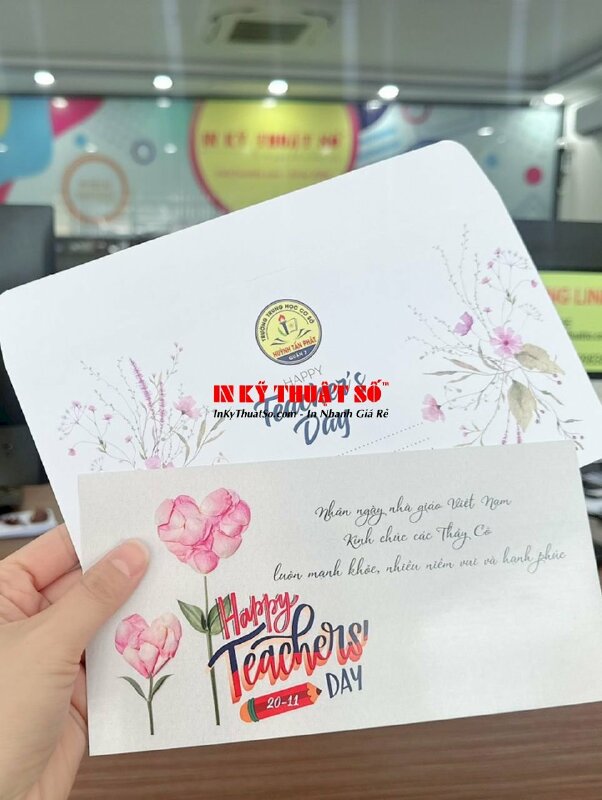 IN KỸ THUẬT SỐ
TRƯỜNG TRUNG HỌC CƠ SỞ
HUỲNH TẤN PHÁT
QUẬN 7
HAPPY
Teacher's
Day
IN KỸ THUẬT SỐ™
InKyThuatSo.com - In Nhanh Giá Rẻ
Nhân ngày nhà giáo Việt Nam
Kính chúc các Thầy Cô
luôn mạnh khỏe, nhiều niềm vui và hạnh phúc
Happy
Teachers'
DAY
20-11